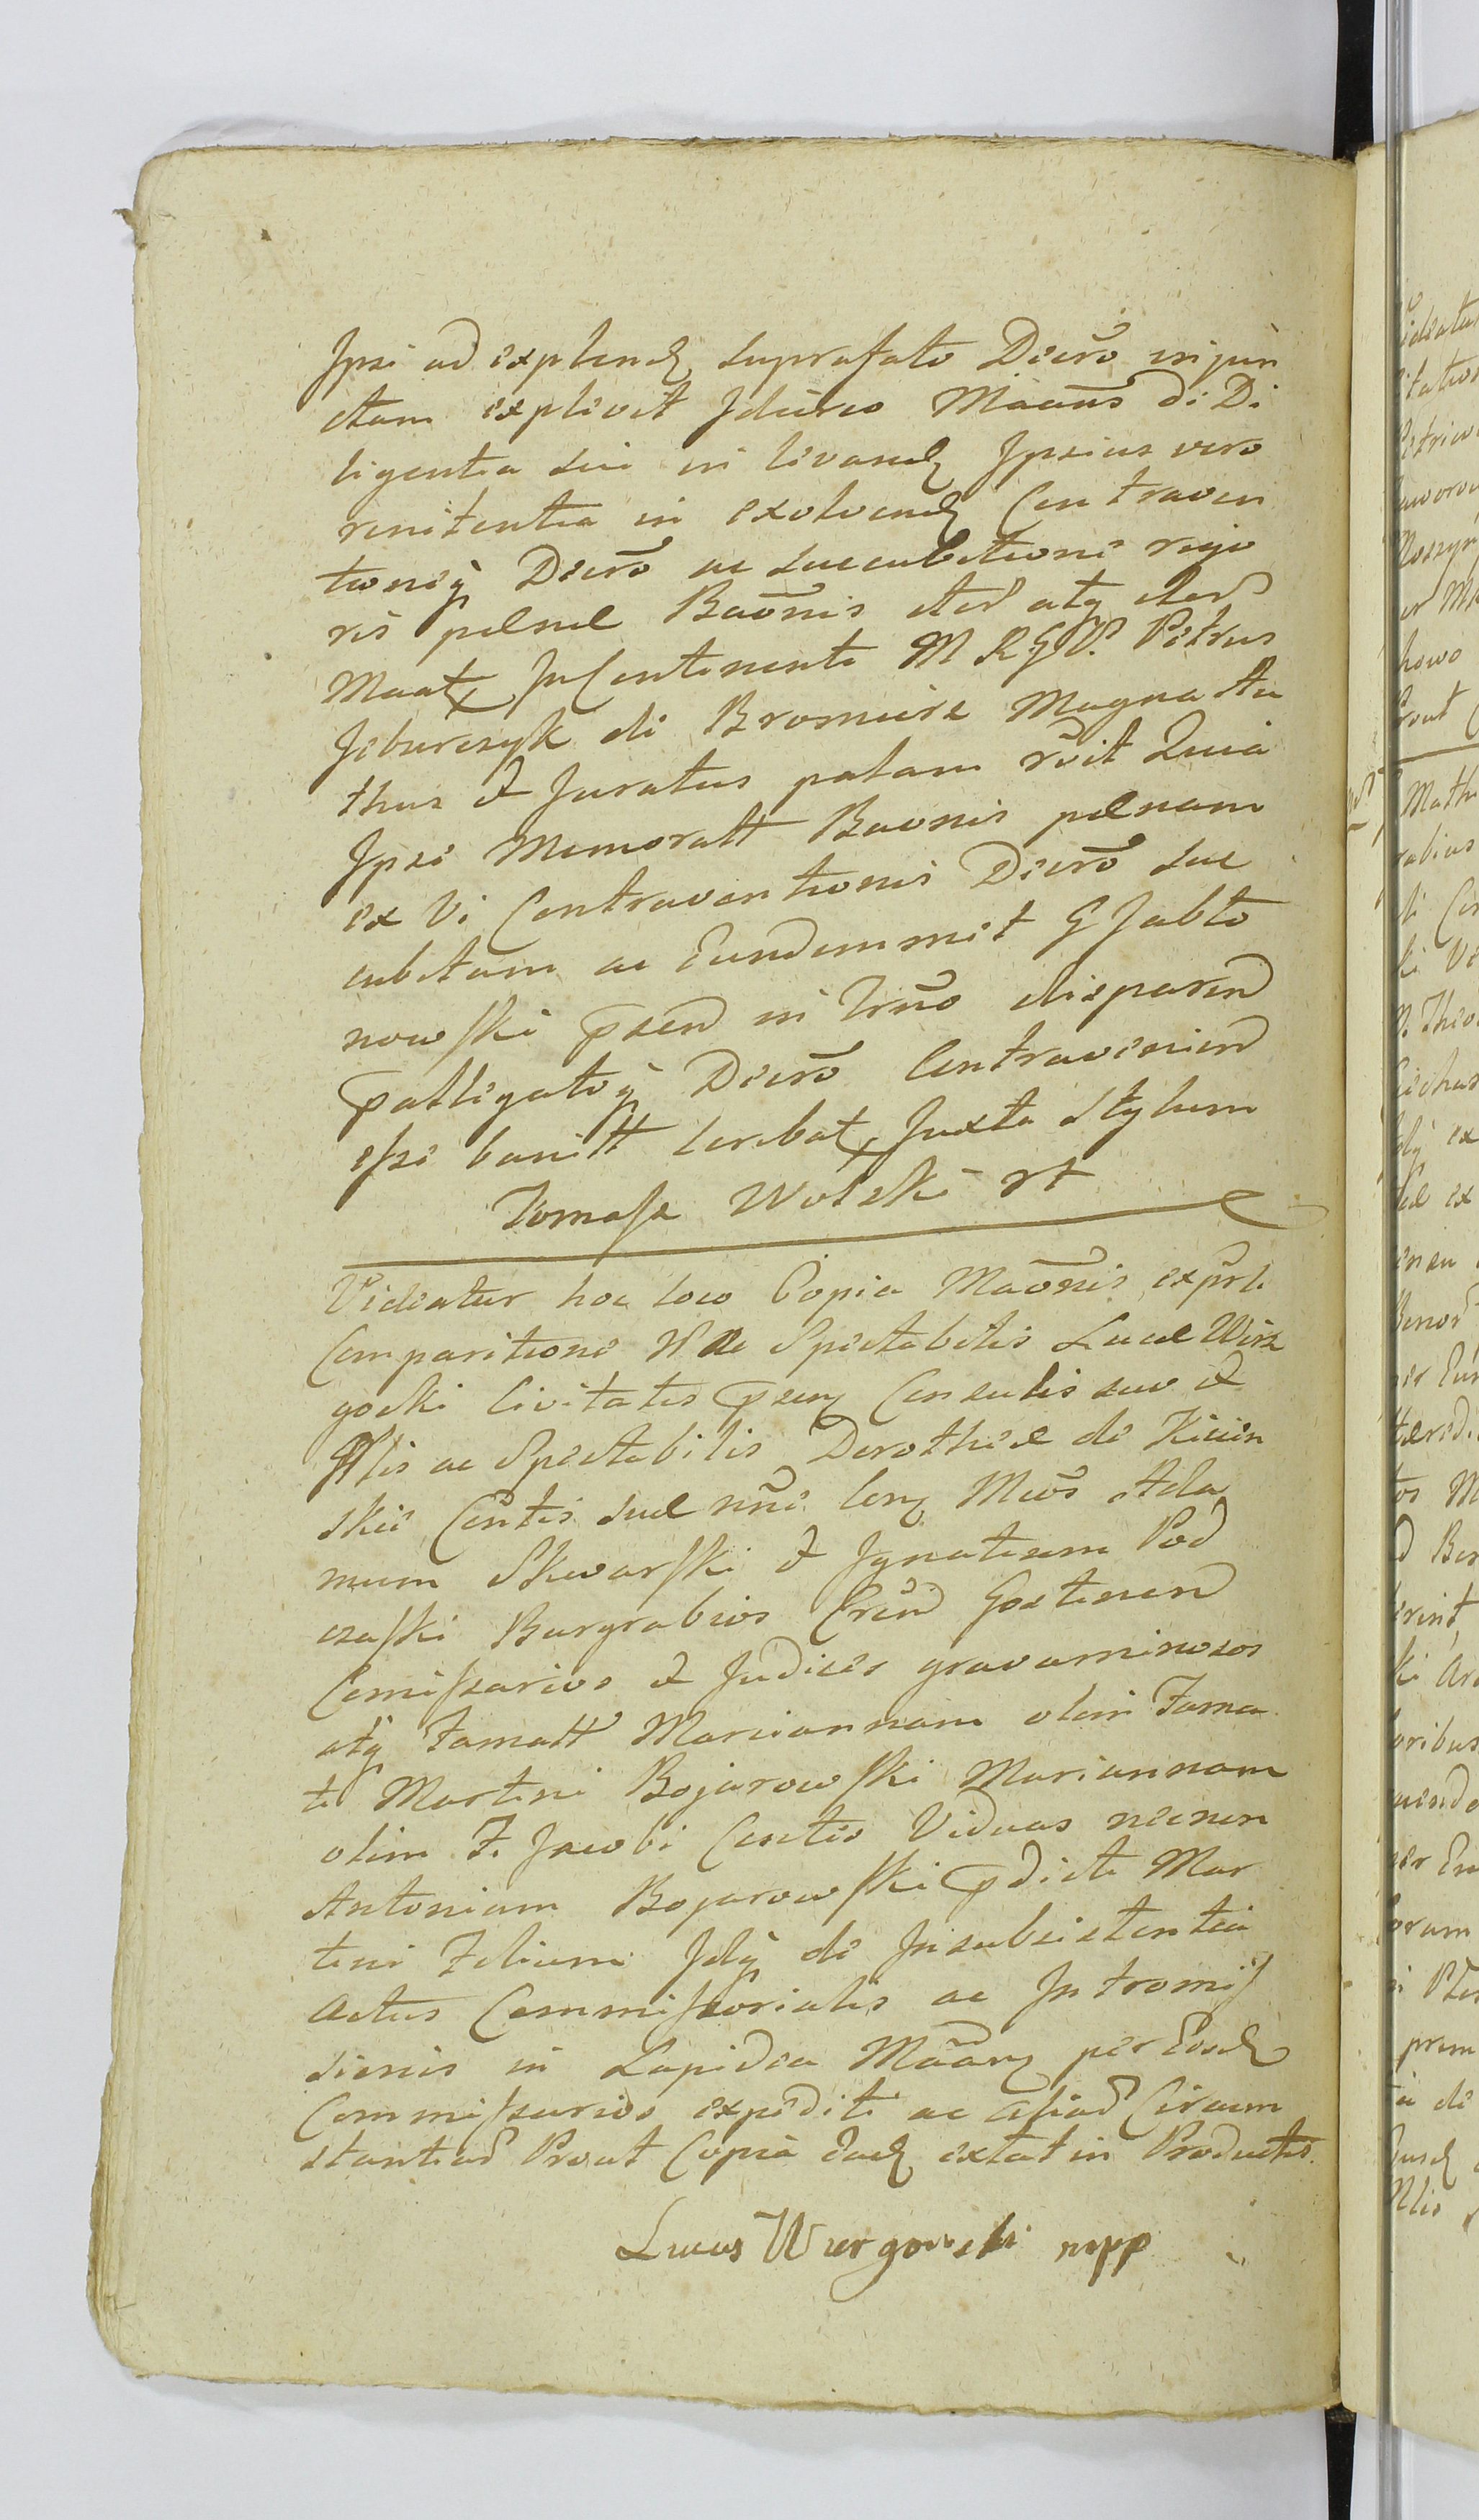 Jpsi ad explend suprafato Decro injun
ctam explevit Jdeirco Maaũs di Di
ligentia sui in levand Jpsius vero
renitentia in exolvend Contraven
tioneq Decro ac succubitione rigo
ris pœnæ Baõnis ated atq ated
Maat Jn Continenti M R G V. Petrus
Jeburczyk di Bromierz Magna Au
thus & Juratus palam rñit Quia
Jpse Memoratt Baonis pœnam
ex Vi Contraventionis Decro suc
cubitam ac Eundemmet G Jabło
nowski psen in Trno disparend
patligatoq Decro Contravenien
esse banitt scribat Juxta Stylum
Tomasz Wolski rt
Videatur hoc loco Copia Maõnis expri
Comparitione N ac Spectabilis Lucæ Wierz
gocki Civitatis psen Consulis suo &
Nlis ac Spectabilis Dorotheæ de Kicien
skie Contis suæ nñe Con Mcos Ada
mum Skwarski & Jgnatium Pod
czaski Burgrabios Cren Gostinen
Comissarios & Judices gravaminosos
atq Famatt Mariannam olim Fama
ti Martini Bojarowski Mariannam
olim F. Jacobi Contis Viduas necnon
Antonium Bojarowski pdicti Mar
tini Filium Jdq de Jnsubsistentia
Actus Commissorialis ac Jntromis
sionis in Lapidea Maan per Eosd
Commissarios expediti ac aliad Circum
stantiad Prout Copia Ead extat in Productis.
Lucas Wiergowski mpp